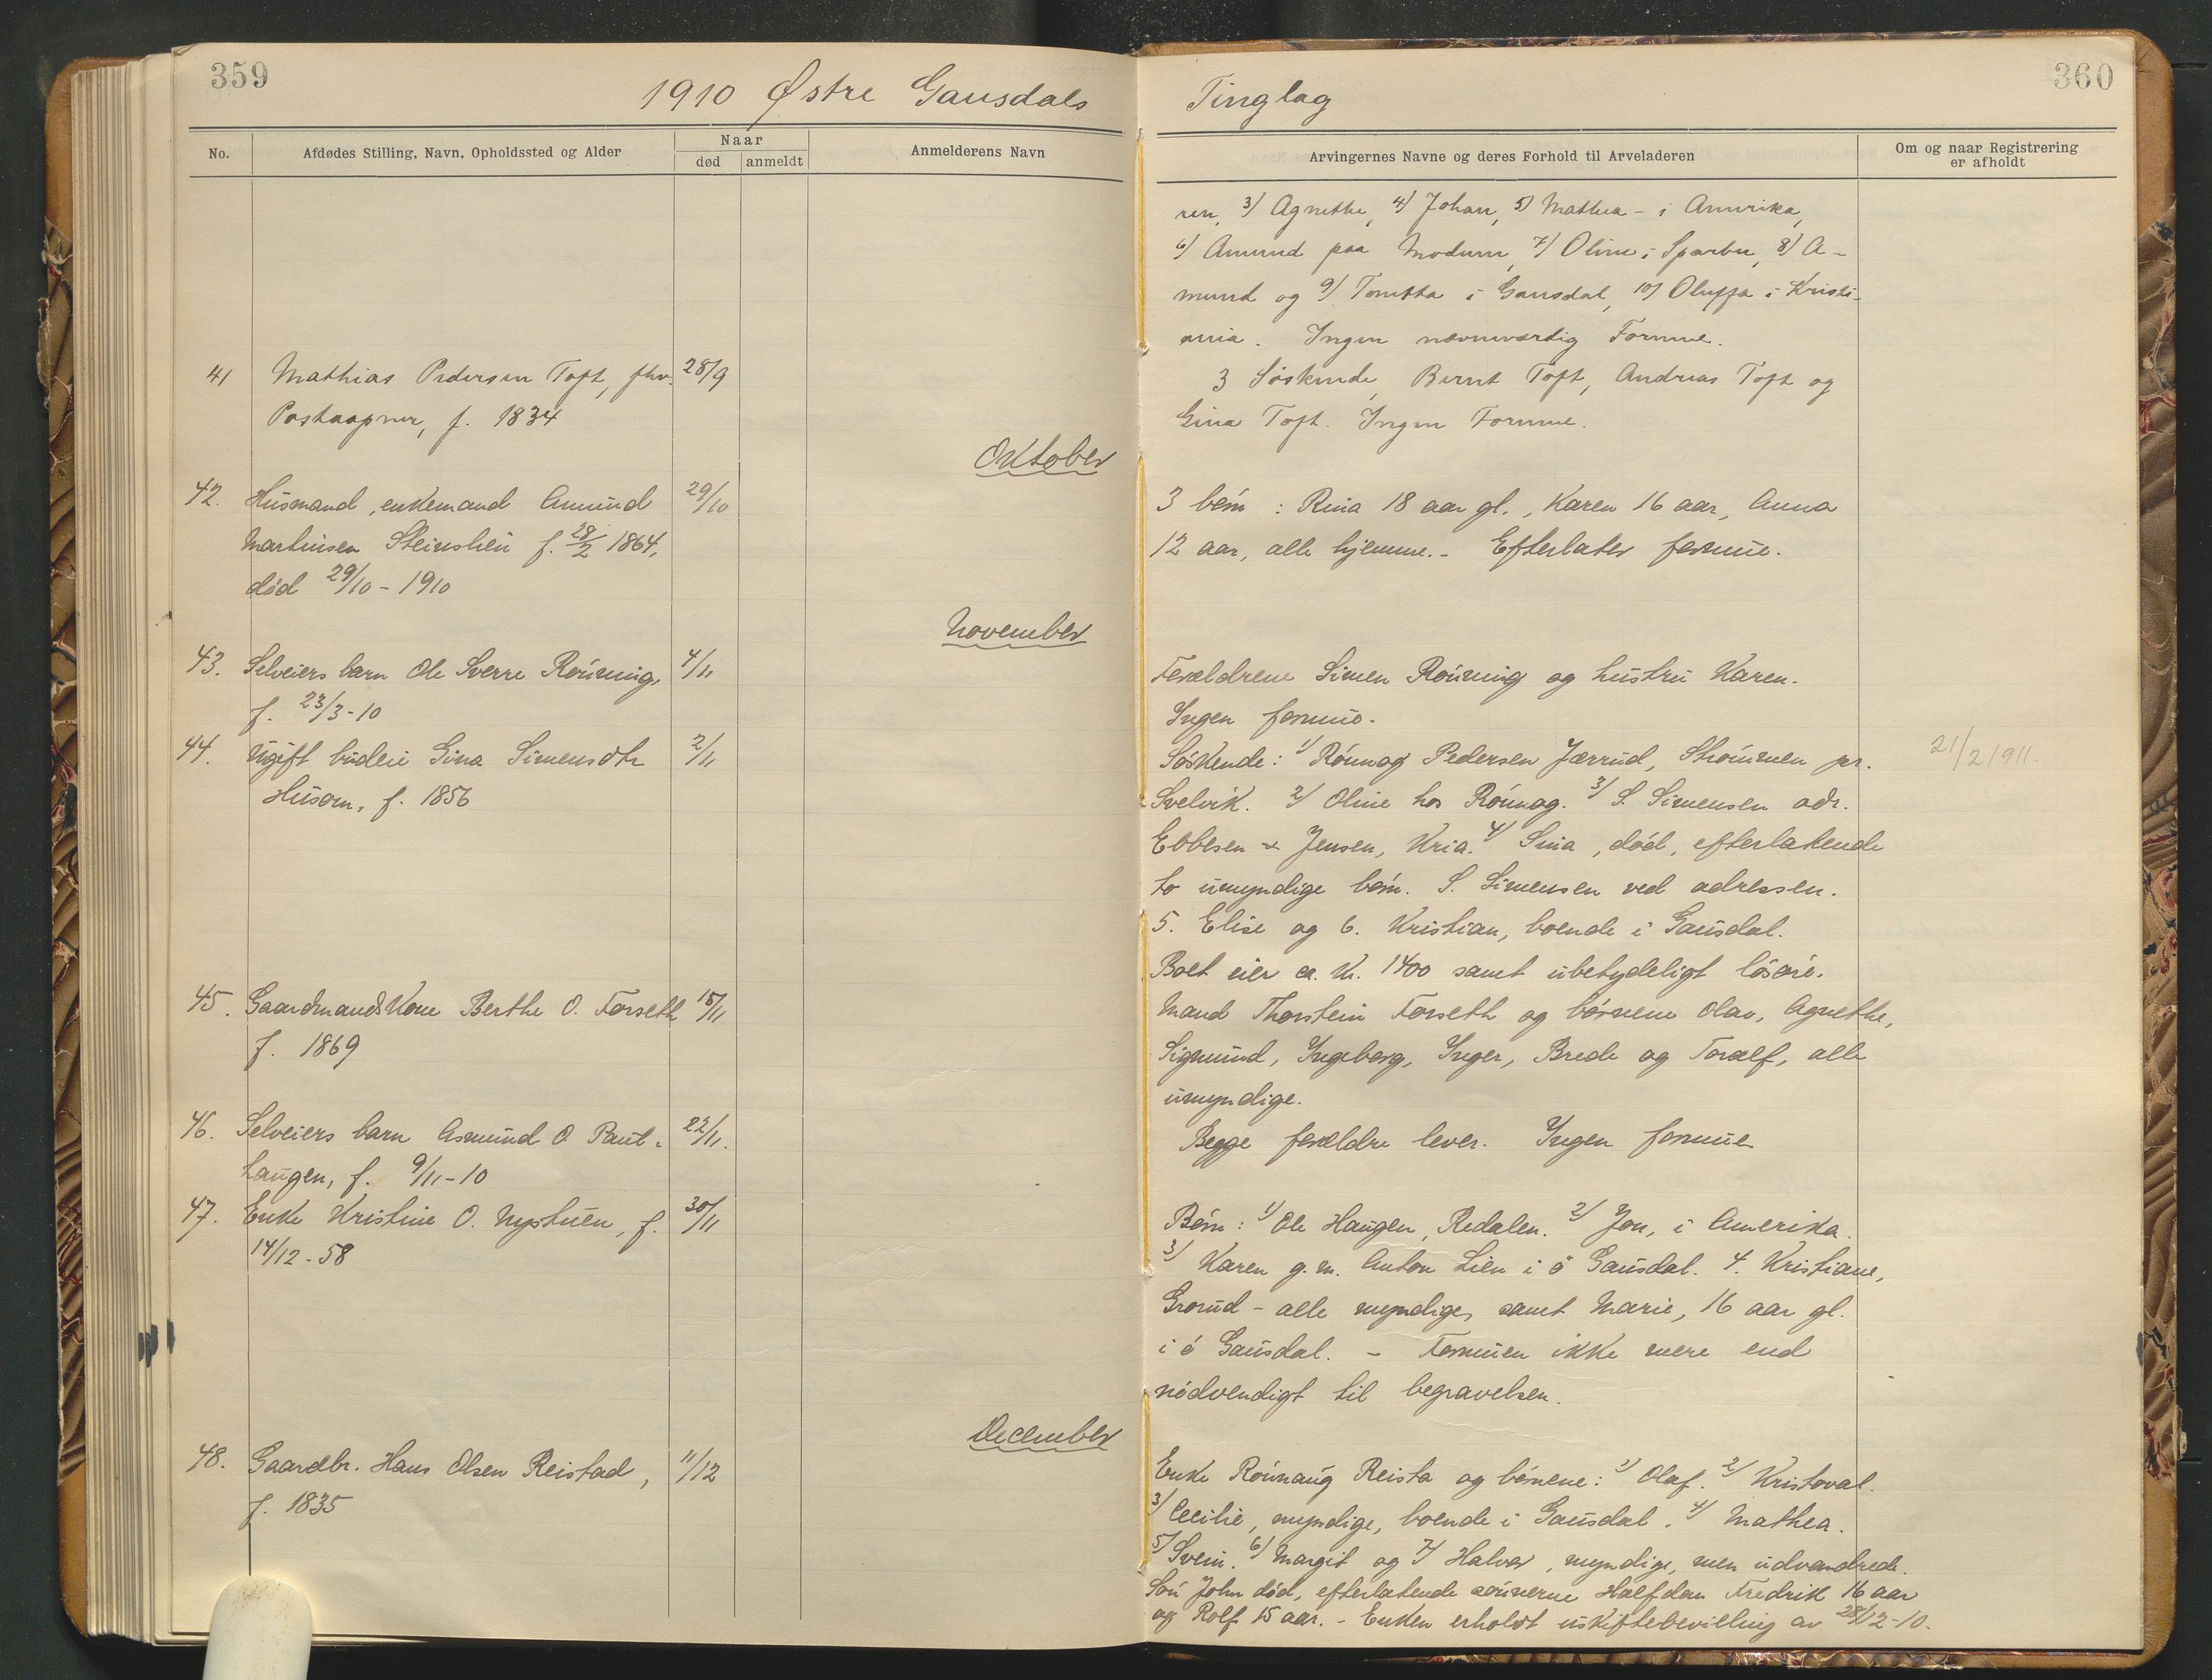 359
1910 Østre Gausdals
Tinglag
360
No.
Afdødes Stilling, Navn, Opholdssted og Alder
Naar
død
anmeldt
Anmelderens Navn
Arvingernes Navne og deres Forhold til Arveladeren
Om og naar Registrering
er afholdt
ren, 3) Agnethe, 4) Johan, 5) Mathea - i Amerika,
6) Amund paa Modum, 7) Oline i Sparbu, 8) A-
mund og 9) Tonetta i Gausdal, 10) Oluffa i Kristi-
ania. Ingen nævneværdig Formue.
41 Mathias Pedersen Toft, fhv. 28/9
Postaapner, f. 1834
3 Søskende, Bernt Toft, Andreas Toft og
Gina Toft. Ingen Formue.
Oktober
42. Husmand, enkemand Amund 29/10
Martinsen Steinslien f. 28/2 1864,
død 29/10 - 1910
3 børn : Rina 18 aar gl., Karen 16 aar, Anna
12 aar, alle hjemme. - Efterlater formue.
November
43. Selveiers barn Ole Sverre Rønning, 4/11
f. 23/3 - 10
Forældrene Simen Rønning og hustru Karen.
Ingen formue.
44. Ugift budeie Gina Simensdtr 2/11
Husom, f. 1856
Søskende: 1/ Rønnog Pedersen Jærrud, Strømmen pr.
Svelvik. 2/ Oline hos Rønnog. 3/ S. Simensen adr.
Ebbesen & Jensen, Kria. 4/ Sina, død, efterlatende
to umyndige børn. S. Simensen ved adressen.
5. Elise og 6. Kristian, boende i Gausdal.
Boet eier ca. kr. 1400 samt ubetydeligt løsøre.
21/2 1911.
45. Gaardmandskone Berthe O. Forseth 15/11
f. 1869
Mand Thorstein Forseth og børnene Olav, Agnethe,
Sigmund, Ingeborg, Inger, Brede og Toralf, alle
umyndige.
46. Selveiers barn Asmund O. Paut- 22/11.
haugen, f. 9/11 - 10
Begge forældre lever. Ingen formue
47. Enke Kristine O. Nystuen, f. 30/11
14/12 - 58
Børn: 1/ Ole Haugen, Redalen. 2/ Jon, i Amerika.
3/ Karen g. m. Anton Lien i ø Gausdal. 4. Kristiane,
Grorud - alle myndige, samt Marie, 16 aar gl.
i ø Gausdal. - Formuen ikke mere end
nødvendigt til begravelsen.
December
48. Gaardbr. Hans Olsen Reistad, 11/12
f. 1835
Enke Rønnaug Reista og børnene: 1/ Olaf. 2/ Kristoval.
3/ Cecilie, myndige, boende i Gausdal. 4/ Mathea.
5/ Svein. 6/ Margit og 7/ Halvor, myndige, men udvandrede.
Søn John død, efterlatende sønnerne Halfdan Fredrik 16 aar
og Rolf 15 aar. - Enken erholdt uskiftebevilling av 28/12 - 10.